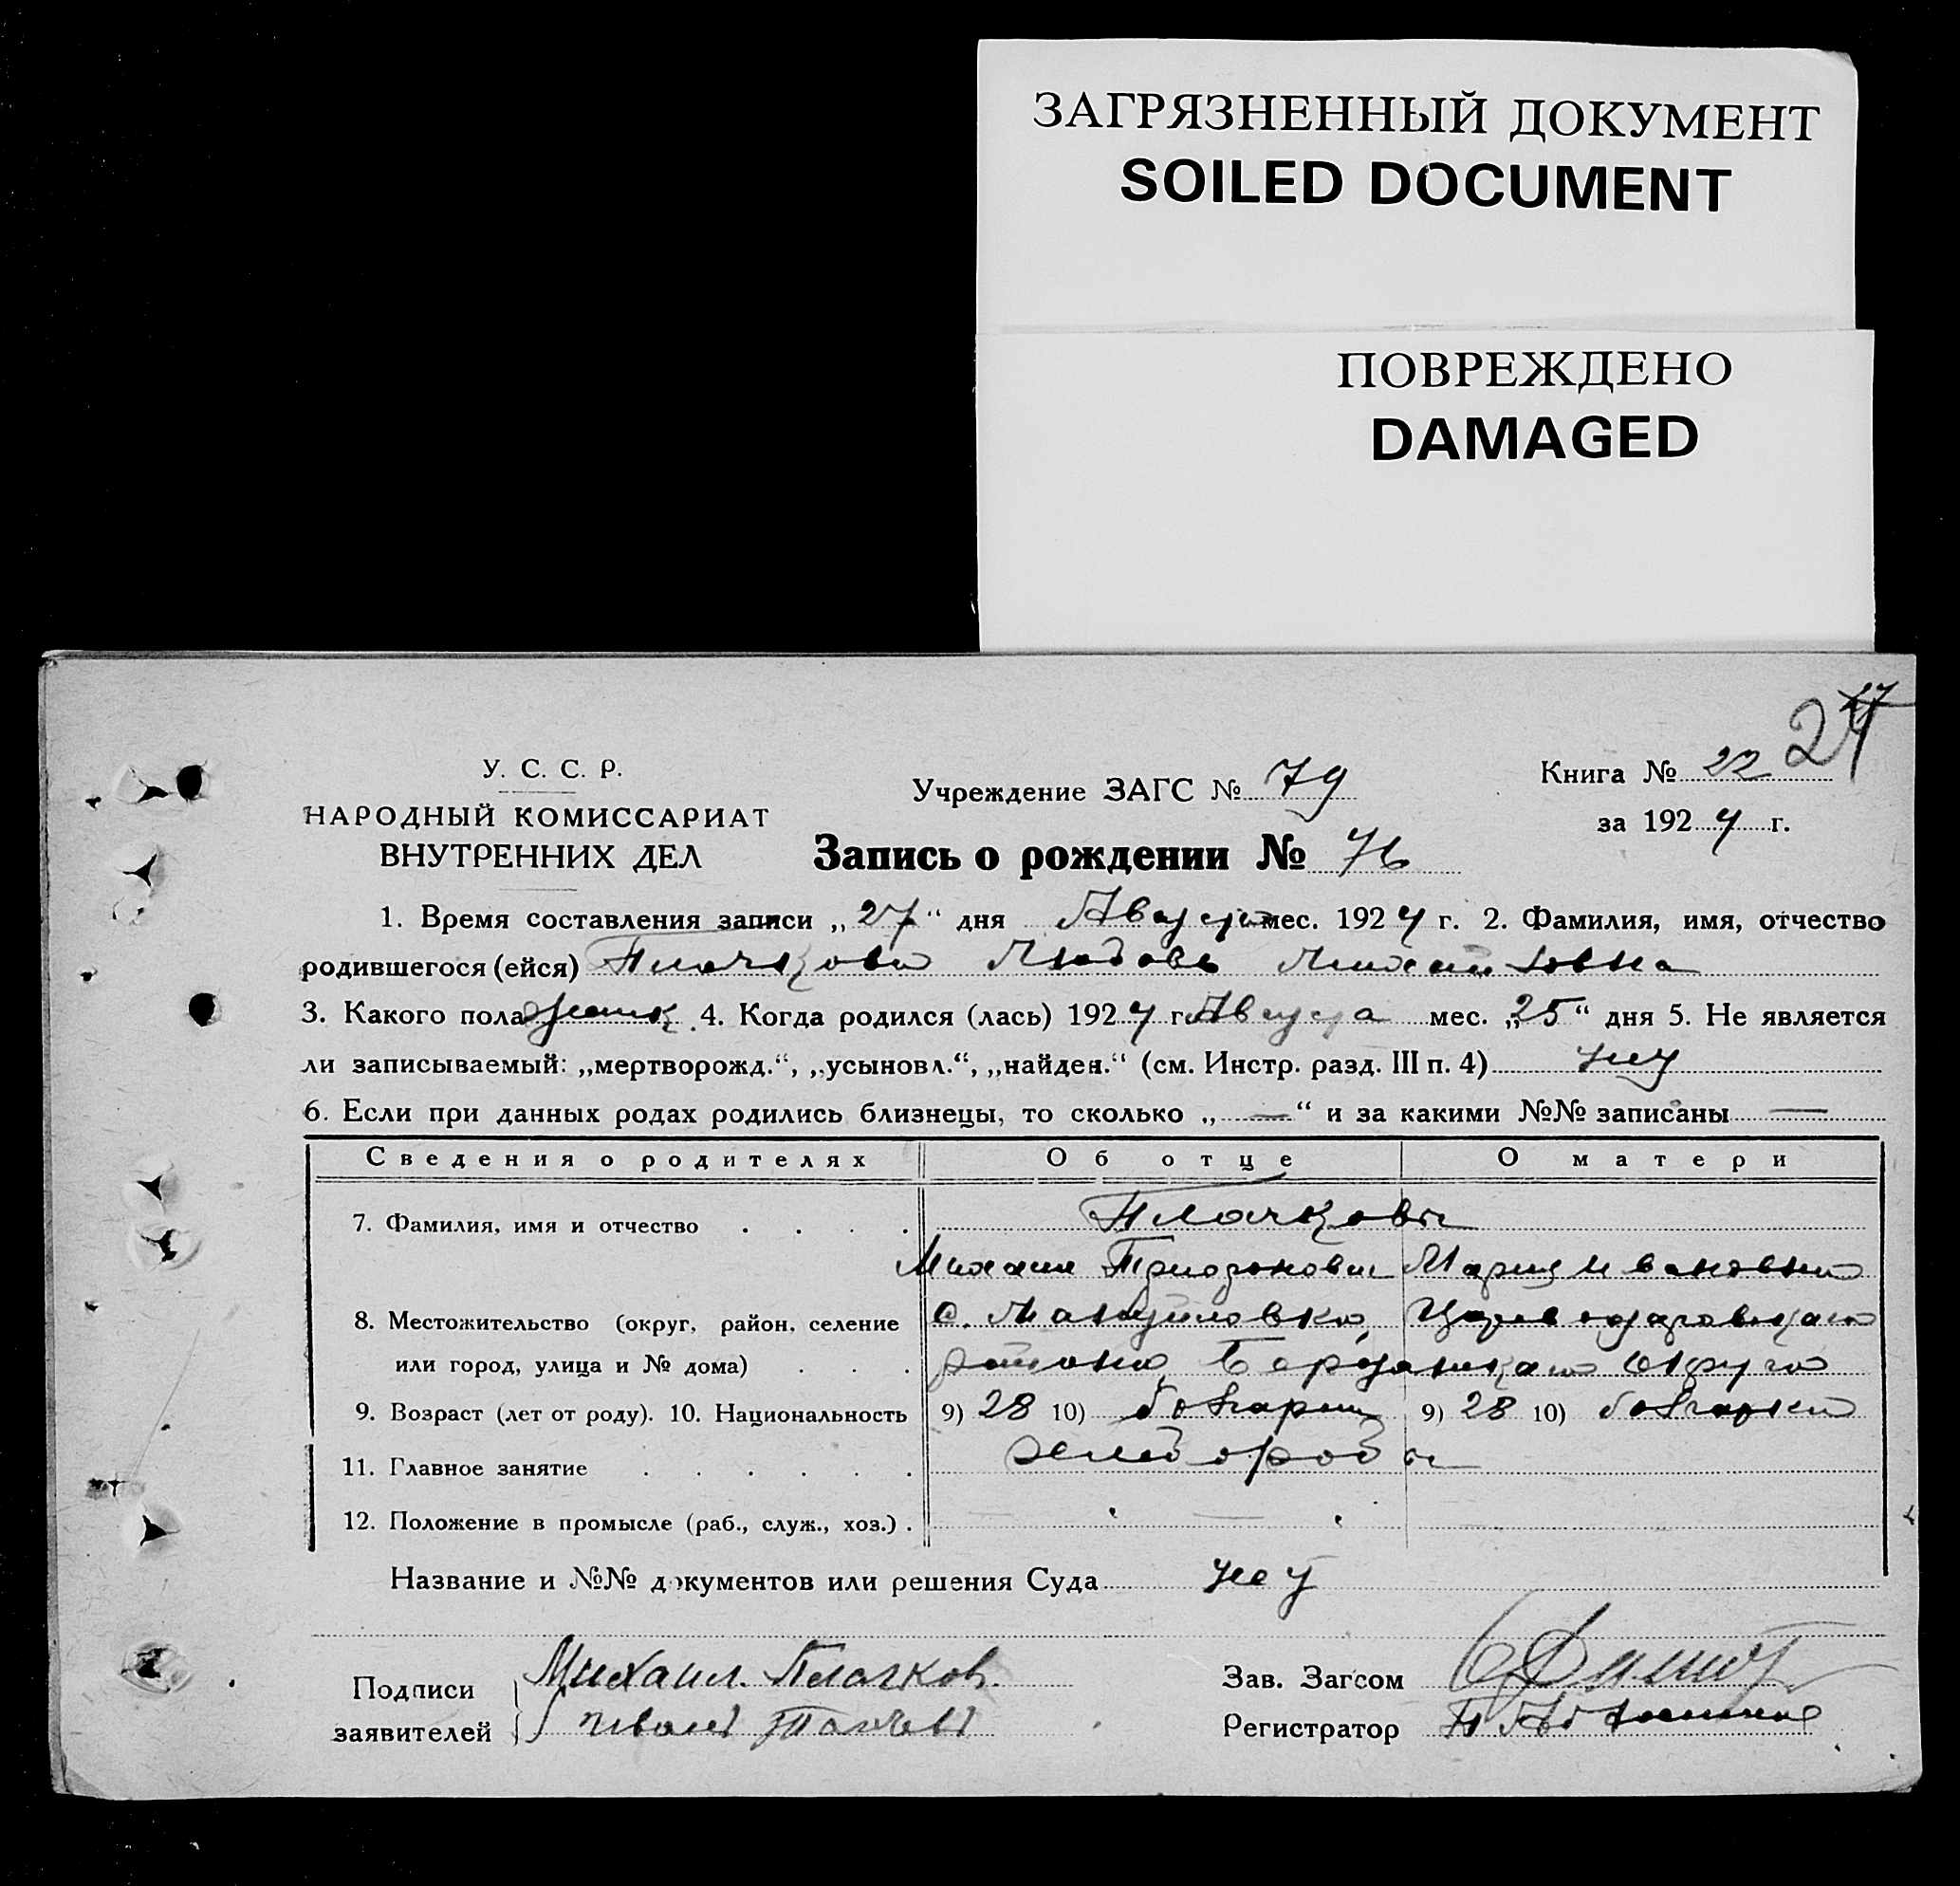 ЗАГРЯЗНЕННЫЙ ДОКУМЕНТ
SOILED DOCUMENT
ПОВРЕЖДЕНО
DAMAGED
У. С. С. Р.
НАРОДНЫЙ КОМИССАРИАТ
ВНУТРЕННИХ ДЕЛ
Учреждение ЗАГС № 79
Книга № 22
за 1924 г.
Запись о рождении № 76
1. Время составления записи „27“ дня Августа мес. 1924 г. 2. Фамилия, имя, отчество
родившегося (ейся) Плачкова Любовь Михайловна
3. Какого пола женск. 4. Когда родился (лась) 1924 г. Августа мес. „25“ дня 5. Не является
ли записываемый: „мертворожд.“, „усыновл.“, „найден.“ (см. Инстр. разд. III п. 4) нет
6. Если при данных родах родились близнецы, то сколько „—“ и за какими №№ записаны —
Сведения о родителях Об отце О матери
7. Фамилия, имя и отчество Плачковы
Михаил Мария Ивановна
8. Местожительство (округ, район, селение с. Мануйловка,
или город, улица и № дома) района Бердянского округа
9. Возраст (лет от роду). 10. Национальность 9) 28 10) болгарин 9) 28 10) болгарка
11. Главное занятие хлеборобы
12. Положение в промысле (раб., служ., хоз.)
Название и №№ документов или решения Суда нет
Подписи Михаил Плачков. Зав. Загсом
заявителей Регистратор